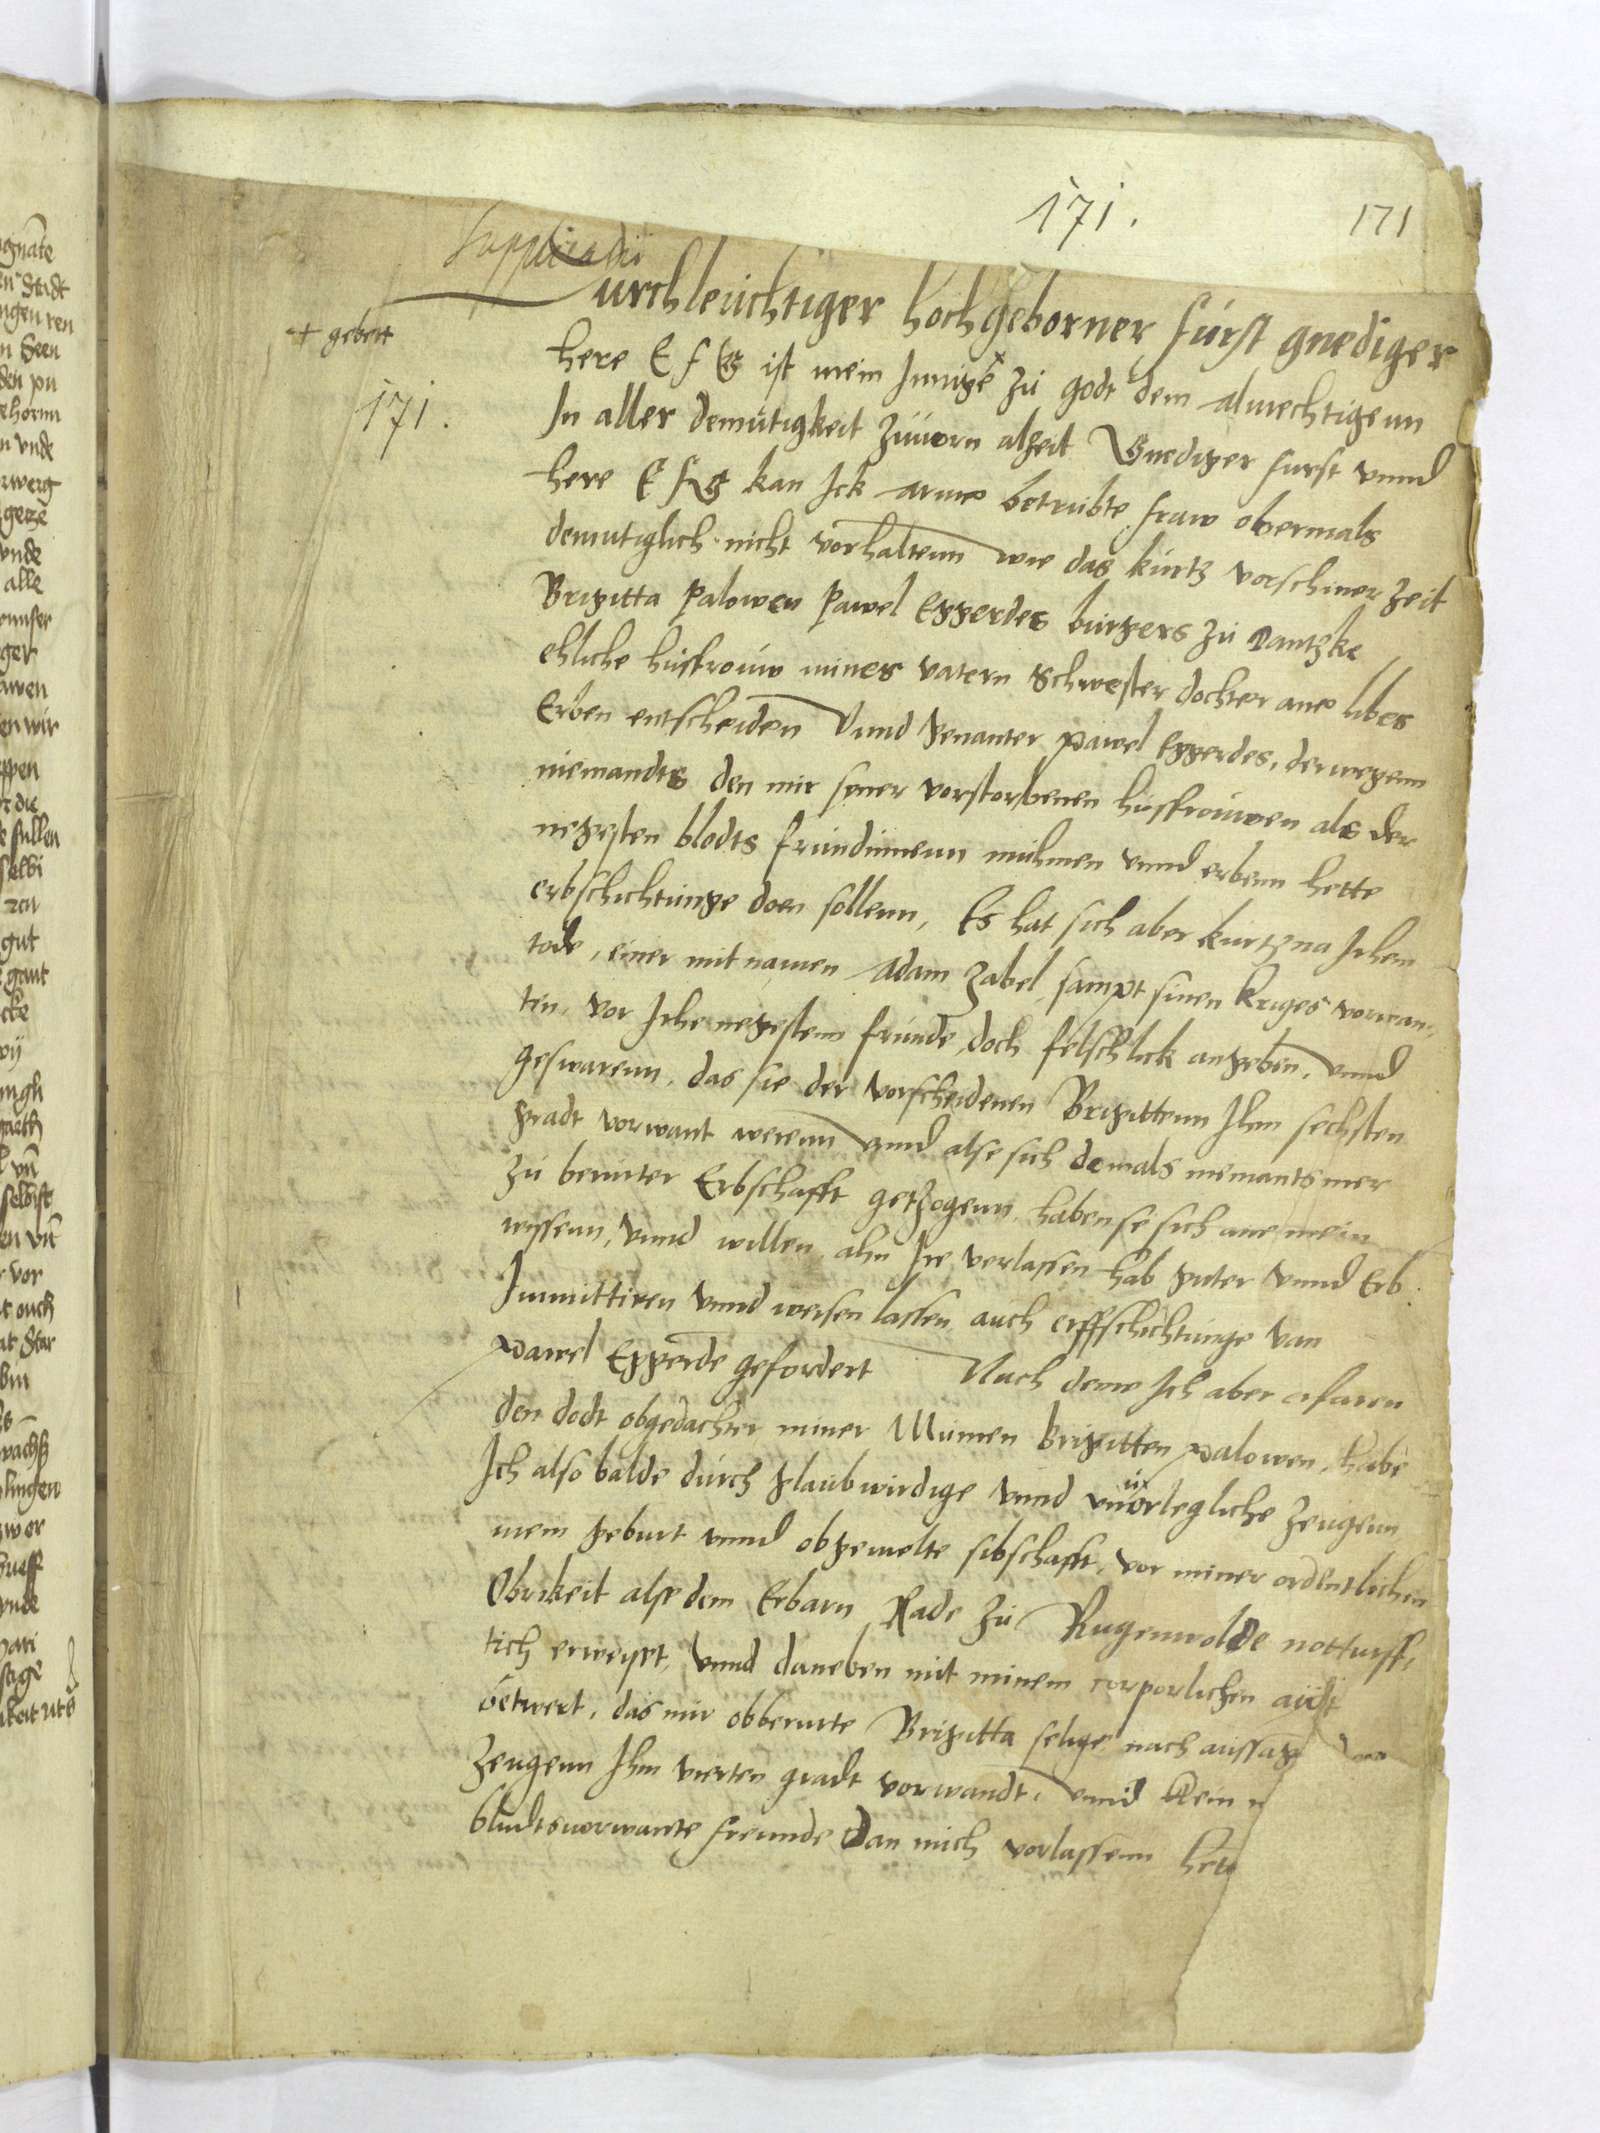 171.
171
Supplicatii
urchleuchtiger hochgeborner furst gnediger
+ gebett
here E f G ist mein Innige + zu godt dem almechtigenn
171.
In aller demutigkeit zuuorn alzeit Gnediger furst vnnd
here E f G kan Ick arme betrubte fraw obermals
demutiglich nicht vorhaltenn wie das kurtz vorschiner zeit
Brigitta Palowen Pawel Eggerdes burgers zu Dantzke
ehliche husfrouw mines vatern Schwester dochter ane libes
Erben entscheiden Vnnd genanter Pawel Eggerdes, derwegenn
niemandts den mir syner vorstorbenen husfrouwen als der
negesten blodts frundinnenn muhmen vnnd erbenn hette
erbschichtunge doen sollenn, Es hat sich aber kurtz na Irhem
tode, einer mit namen Adam Zabel, sampt sinen kriges vorwan,
ten, vor Irhe negestenn frunde, doch felschlick angeben, vnnd
geswarenn, das sie der vorscheidenen Brigittenn Ihm sechsten
gradt vorwant werenn vnnd alse sich demals niemants mer
zu berurter Erbschafft getzogenn, haben se sich ane mein
wissenn, vnnd willen, ahn Ire verlassen hab guter vnnd Erb
Inmittiren vnnd weisen lassen, auch erffschichtunge van
Pawel Eggerde gefordert Nach deme Ich aber erfaren
den dodt obgedachter miner Mumen Brigitten Palowen, habe
Ich also balde durch glaubwirdige vnnd vnuorlegliche zeugenn
mein geburt vnnd obgemelte sibschafft, vor miner ordentlichen
Obrikeit alse dem Erbarn Rade zu Rugenwolde notturff,
tich erweyst, vnnd daneben mit minem corporlichen aidt
betwert, das mir obberurte Brigitta selige nach aussag der
zeugenn Ihm vierten gradt vorwandt, vnnd kein n
bludtsvorwante freunde dan mich vorlassenn hett